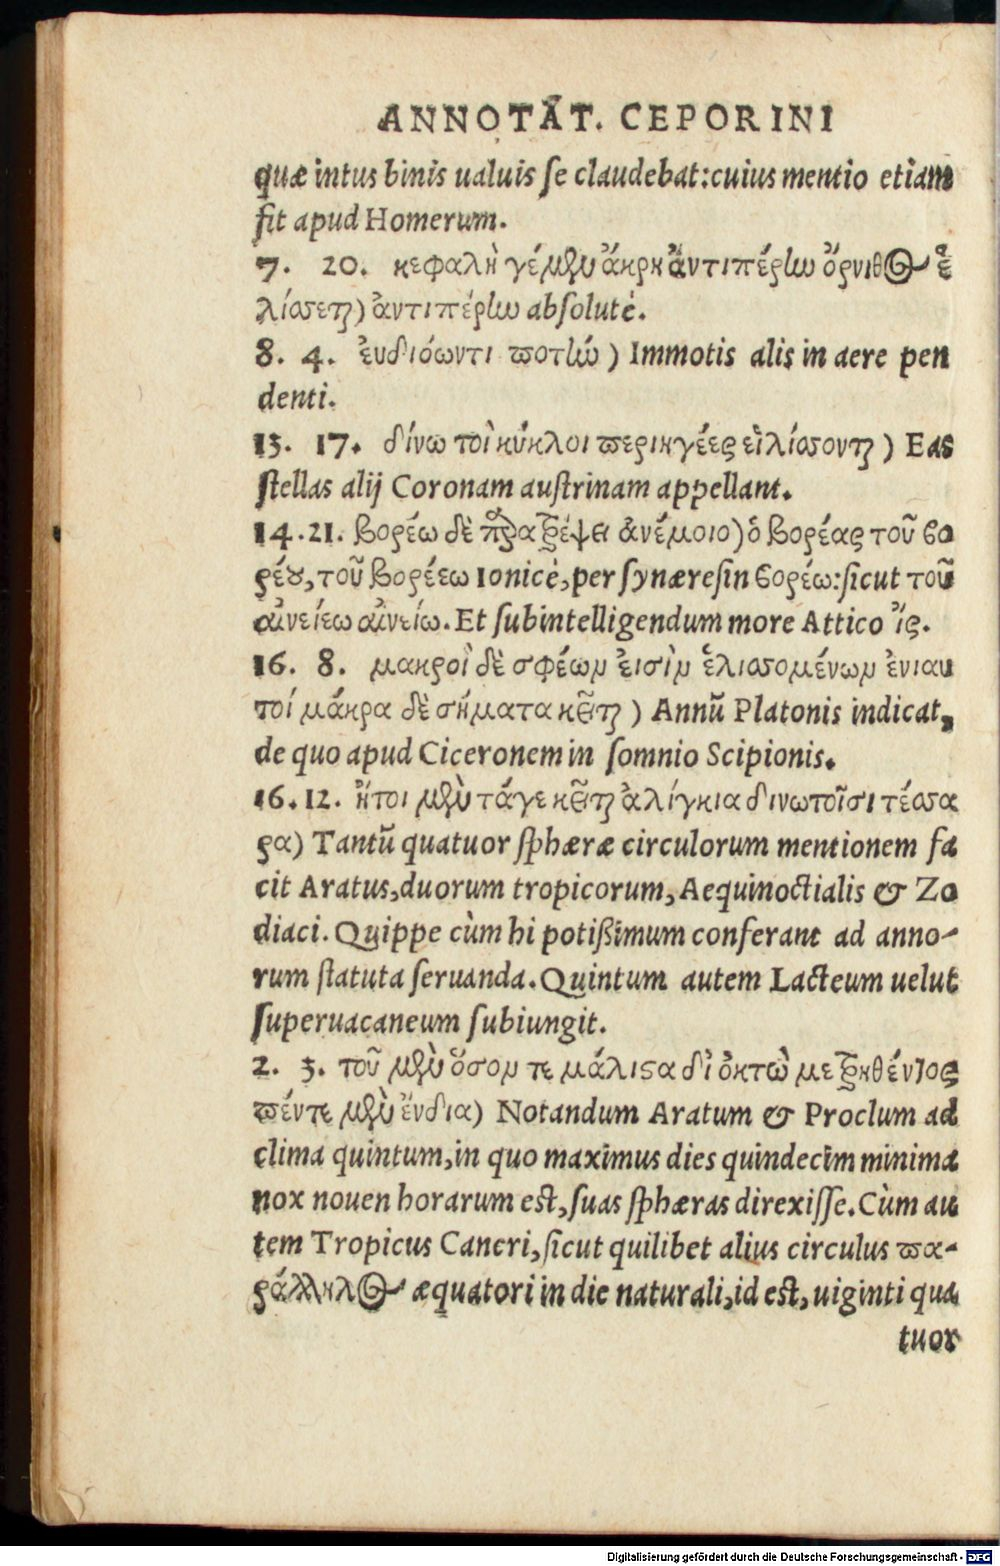 ANNOTAT̃. CEPORINI
quæ intus binis ualuis se claudebat: cuius mentio etiam
fit apud Homerum.
7. 20. κεφαλὴ γέμὲν ἄκρη ἀντιπέρην ὄρνιθος ἑ
λίσσεται) ἀντιπέρην absolutè.
8. 4. ἐυδιόωντι ποτὴν) Immotis alis in aere pen
denti.
13. 17. δίνω τοὶ κύκλοι περιηγέες εἱλίσσονται) Eas
stellas alij Coronam austrinam appellant.
14. 21. βορέω δὲ παρατρέψει ἀνέμοιο) ὁ βορέας τοῦ βο
ρέου, τοῦ βορέεω Ionicè, per synæresin βορέω: sicut τοῦ
αἰνείεω αἰνείω. Et subintelligendum more Attico ἴς.
16. 8. μακροὶ δὲ σφέων εἰσὶν ἑλισσομένων ἐνιαυ
τοί μάκρα δὲ σήματα κεῖται) Annũ Platonis indicat,
de quo apud Ciceronem in somnio Scipionis.
16. 12. ἤτοι μὲν τάγε κεῖται ἀλίγκια δινωτοῖσι τέσσα
ρα) Tantũ quatuor sphæræ circulorum mentionem fa
cit Aratus, duorum tropicorum, Aequinoctialis & Zo
diaci. Quippe cùm hi potißimum conferant ad anno-
rum statuta seruanda. Quintum autem Lacteum uelut
superuacaneum subiungit.
2. 3. τοῦ μὲν ὅσον τε μάλιστα δἰ ὀκτὼ μετρηθέντος
πέντε μὲν ἔνδια) Notandum Aratum & Proclum ad
clima quintum, in quo maximus dies quindecim minima
nox nouen horarum est, suas sphæras direxisse. Cùm au
tem Tropicus Cancri, sicut quilibet alius circulus πα-
ράλληλος æquatori in die naturali, id est, uiginti qua
tuor
Digitalisierung gefördert durch die Deutsche Forschungsgemeinschaft - DFG